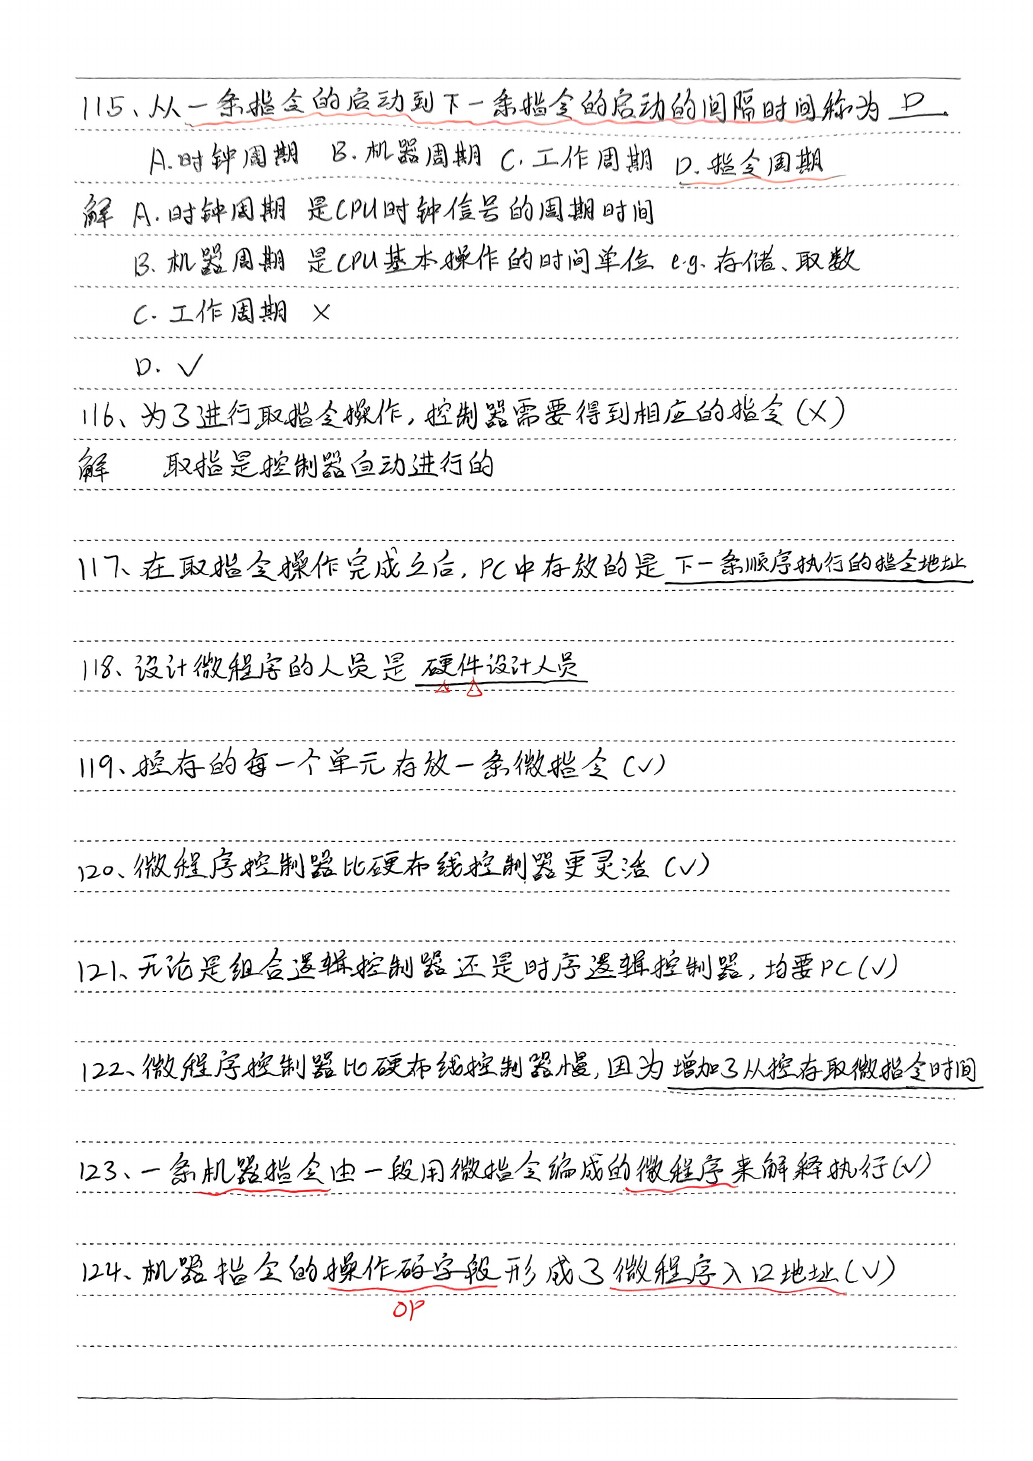 115、从一条指令的启动到下一条指令的启动的间隔时间称为 D .
A.时钟周期 B.机器周期 C.工作周期 D.指令周期
解 A.时钟周期 是CPU时钟信号的周期时间
B.机器周期 是CPU基本操作的时间单位 e.g.存储、取数
C.工作周期 ×
D. √
116、为了进行取指令操作,控制器需要得到相应的指令(×)
解 取指是控制器自动进行的
117、在取指令操作完成之后,PC中存放的是 下一条顺序执行的指令地址
118、设计微程序的人员是 硬件设计人员
119、控存的每一个单元存放一条微指令(√)
120、微程序控制器比硬布线控制器更灵活(√)
121、无论是组合逻辑控制器还是时序逻辑控制器,均要PC(√)
122、微程序控制器比硬布线控制器慢,因为增加了从控存取微指令时间
123、一条机器指令由一段用微指令编成的微程序来解释执行(√)
124、机器指令的操作码字段形成了微程序入口地址(√)
OP